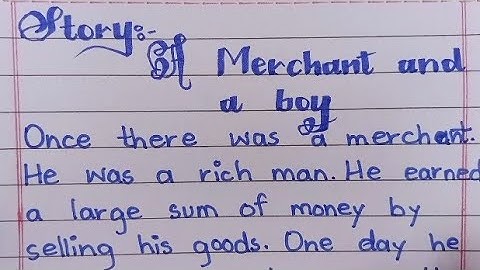 Story:-
A Merchant and
a boy
Once there was a merchant.
He was a rich man. He earned
a large sum of money by
selling his goods. One day he